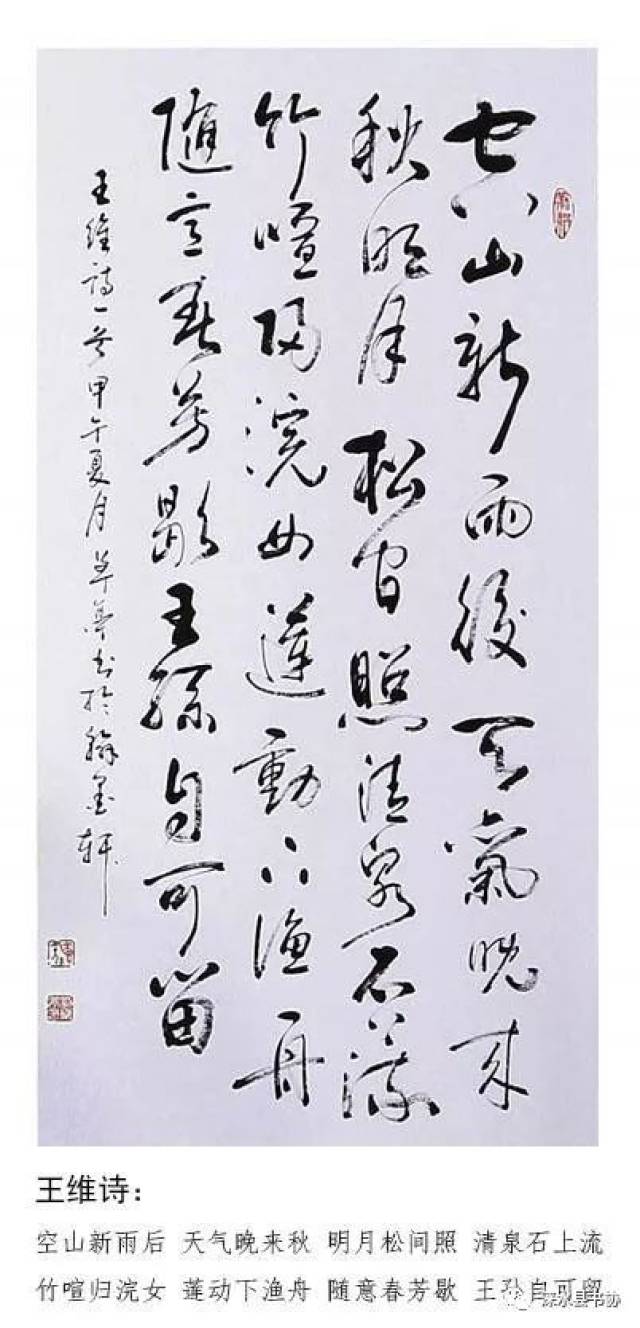 空山新雨後天氣晚来
秋明月松間照清泉石上流
竹喧歸浣女蓮動下漁舟
随意春芳歇王孫自可留
王維詩一首甲午夏月书於翰墨轩
王维诗：
空山新雨后 天气晚来秋 明月松间照 清泉石上流
竹喧归浣女 莲动下渔舟 随意春芳歇 王孙自可留
水县书协